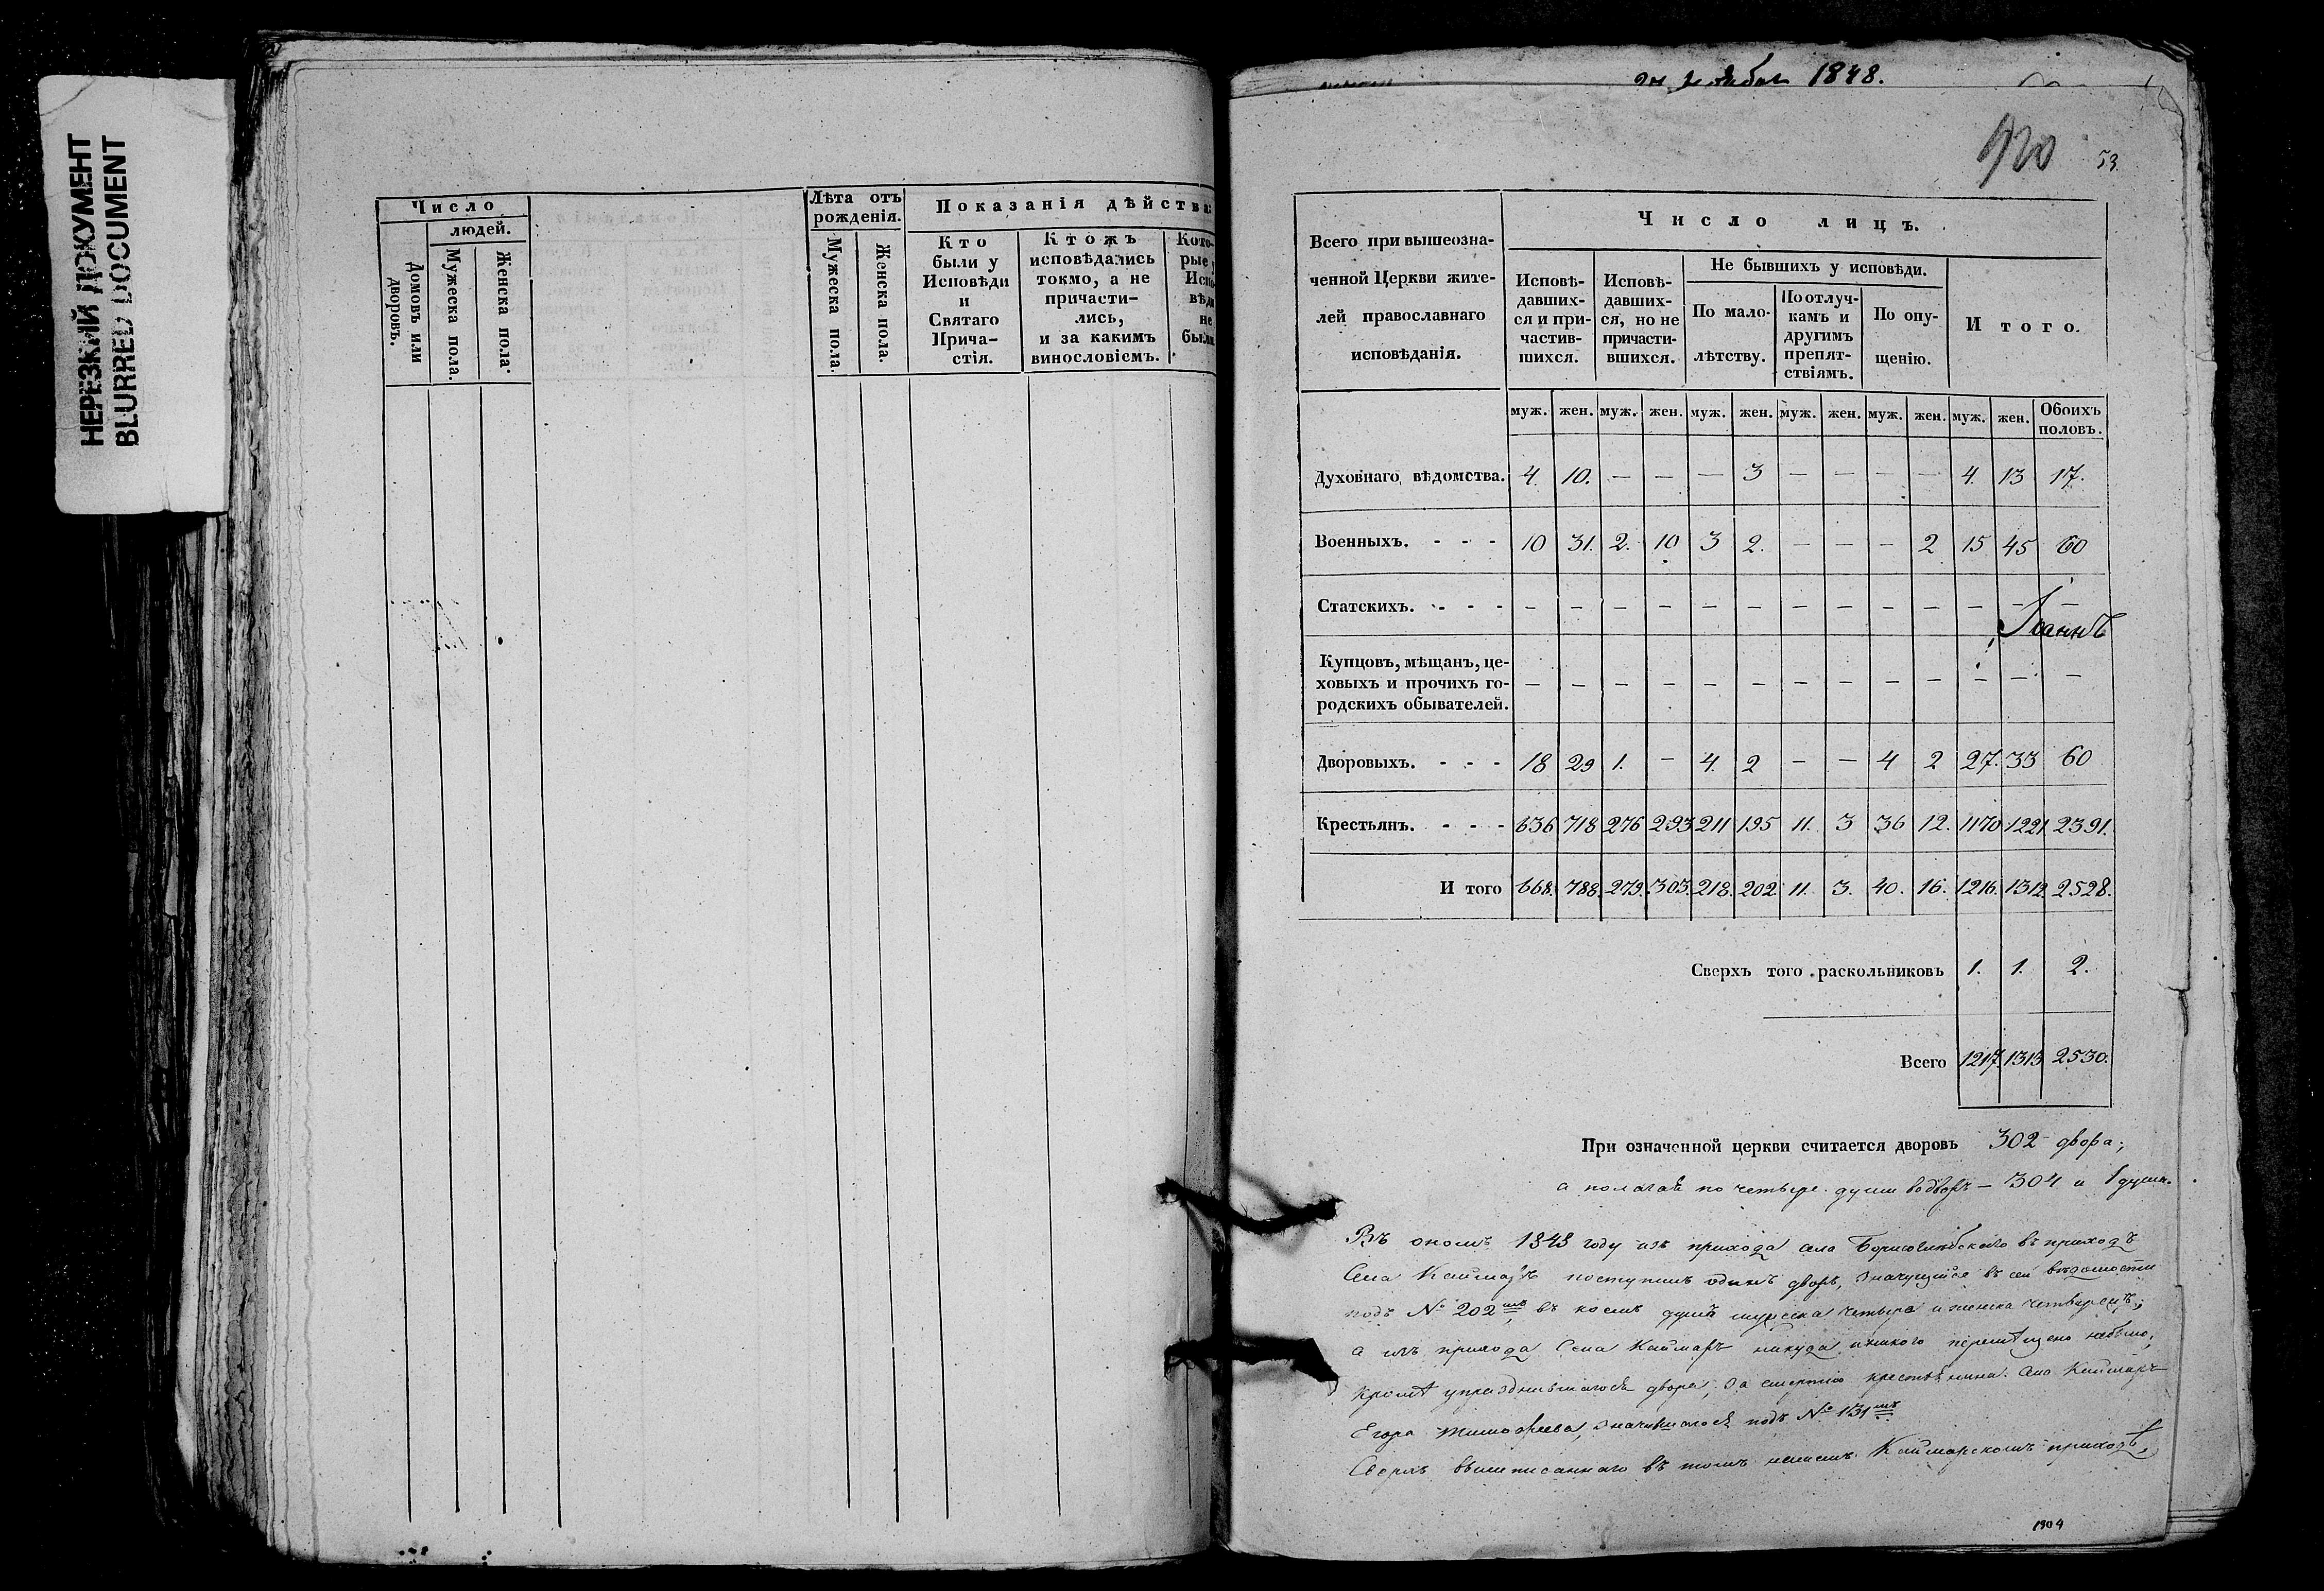 НЕРЕЗКИЙ ДОКУМЕНТ
BLURRED DOCUMENT
Число
людей.
Домовъ или дворовъ.
Мужеска пола.
Женска пола.
Лѣта отъ рожденія.
Мужеска пола.
Женска пола.
Показанія дѣйства
Кто были у Исповѣди и Святаго Прича-стія.
Ктожъ исповѣдались токмо, а не причасти-лись, и за какимъ винословіемъ.
Кото-рые Испо-вѣди не были
1848.
920
53.
Всего при вышеозна-
ченной Церкви жите-
лей православнаго
исповѣданія.
Число лицъ.
Исповѣ-давших-ся и при-частив-шихся.
Исповѣ-давших-ся, но не причасти-вшихся.
Не бывшихъ у исповѣди.
По мало-лѣтству.
По отлуч-камъ и другимъ препят-ствіямъ.
По опу-щенію.
И того.
муж. жен. муж. жен. муж. жен. муж. жен. муж. жен. муж. жен. Обоихъ половъ.
Духовнаго вѣдомства. 4. 10. — — — 3 — — — — 4. 13 17.
Военныхъ. - - - 10 31. 2. 10 3 2. — — — 2 15 45 60
Статскихъ. - - - — — — — — — — — — — — — —
Іоаннъ
Купцовъ, мѣщанъ, це-
ховыхъ и прочихъ го- — — — — — — — — — — — — —
родскихъ обывателей.
Дворовыхъ. - - - 18 29 1. — 4. 2 — — 4 2 27. 33 60
Крестьянъ. - - - 636 718 276 293 211 195 11. 3 36 12. 1170 1221 2391.
И того 668. 788. 279. 303. 218. 202. 11. 3. 40. 16. 1216. 1312 2528.
Сверхъ того раскольниковъ 1. 1. 2.
Всего 1217. 1313 2530.
При означенной церкви считается дворовъ 302 двора;
а полагая по четыре души во дворъ — 304 и 1 душа.
Въ ономъ 1848 году изъ прихода села Борисоглѣбскаго въ приходъ
Села Каймаръ поступилъ одинъ дворъ, значущійся въ сей вѣдомости
подъ № 202мъ, въ коемъ душъ мужеска четыре и женска четыре;
а изъ прихода Села Каймаръ никуда никого перемѣщено небыло,
кромѣ упразднившагося двора, за смертію крестьянина Села Каймаръ
Егора Тимофеева, значившагося подъ № 131мъ.
Сверхъ вышеписаннаго въ томъ Каймарскомъ приходѣ,
1904